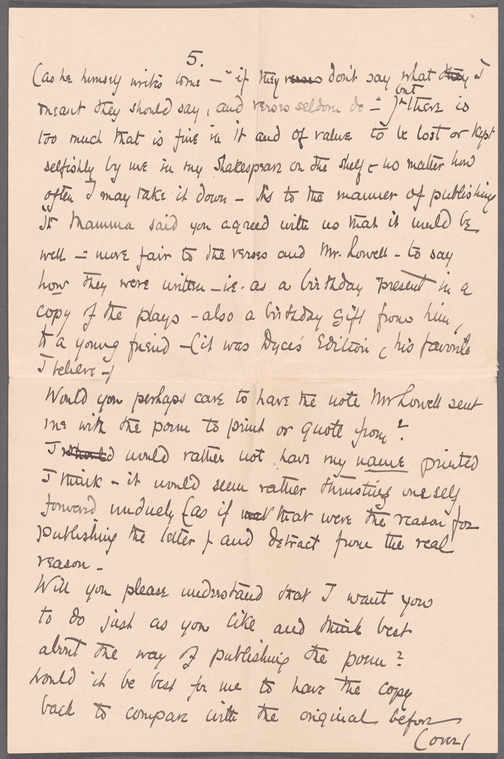 5.
(as he himself writes to me – "if they verses don't say what they I
meant they should say, and verses seldom do –") but there is
too much that is fine in it and of value to be lost or kept
selfishly by me in my Shakespeare on the shelf – no matter how
often I may take it down – As to the manner of publishing
it Mamma said you agreed with us that it would be
well – more fair to the verses and Mr. Lowell – to say
how they were written – i.e. as a birthday present in a
copy of the plays – also a birthday gift from him,
to a young friend – (it was Dyce's Edition, his favorite
I believe –)
Would you perhaps care to have the note Mr Lowell sent
me with the poem to print or quote from?
I should would rather not have my name printed
I think – it would seem rather thrusting oneself
forward unduly (as if that were the reason for
publishing the letter) and detract from the real
reason –
Will you please understand that I want you
to do just as you like and think best
about the way of publishing the poem?
Would it be best for me to have the copy
back to compare with the original before
(over)